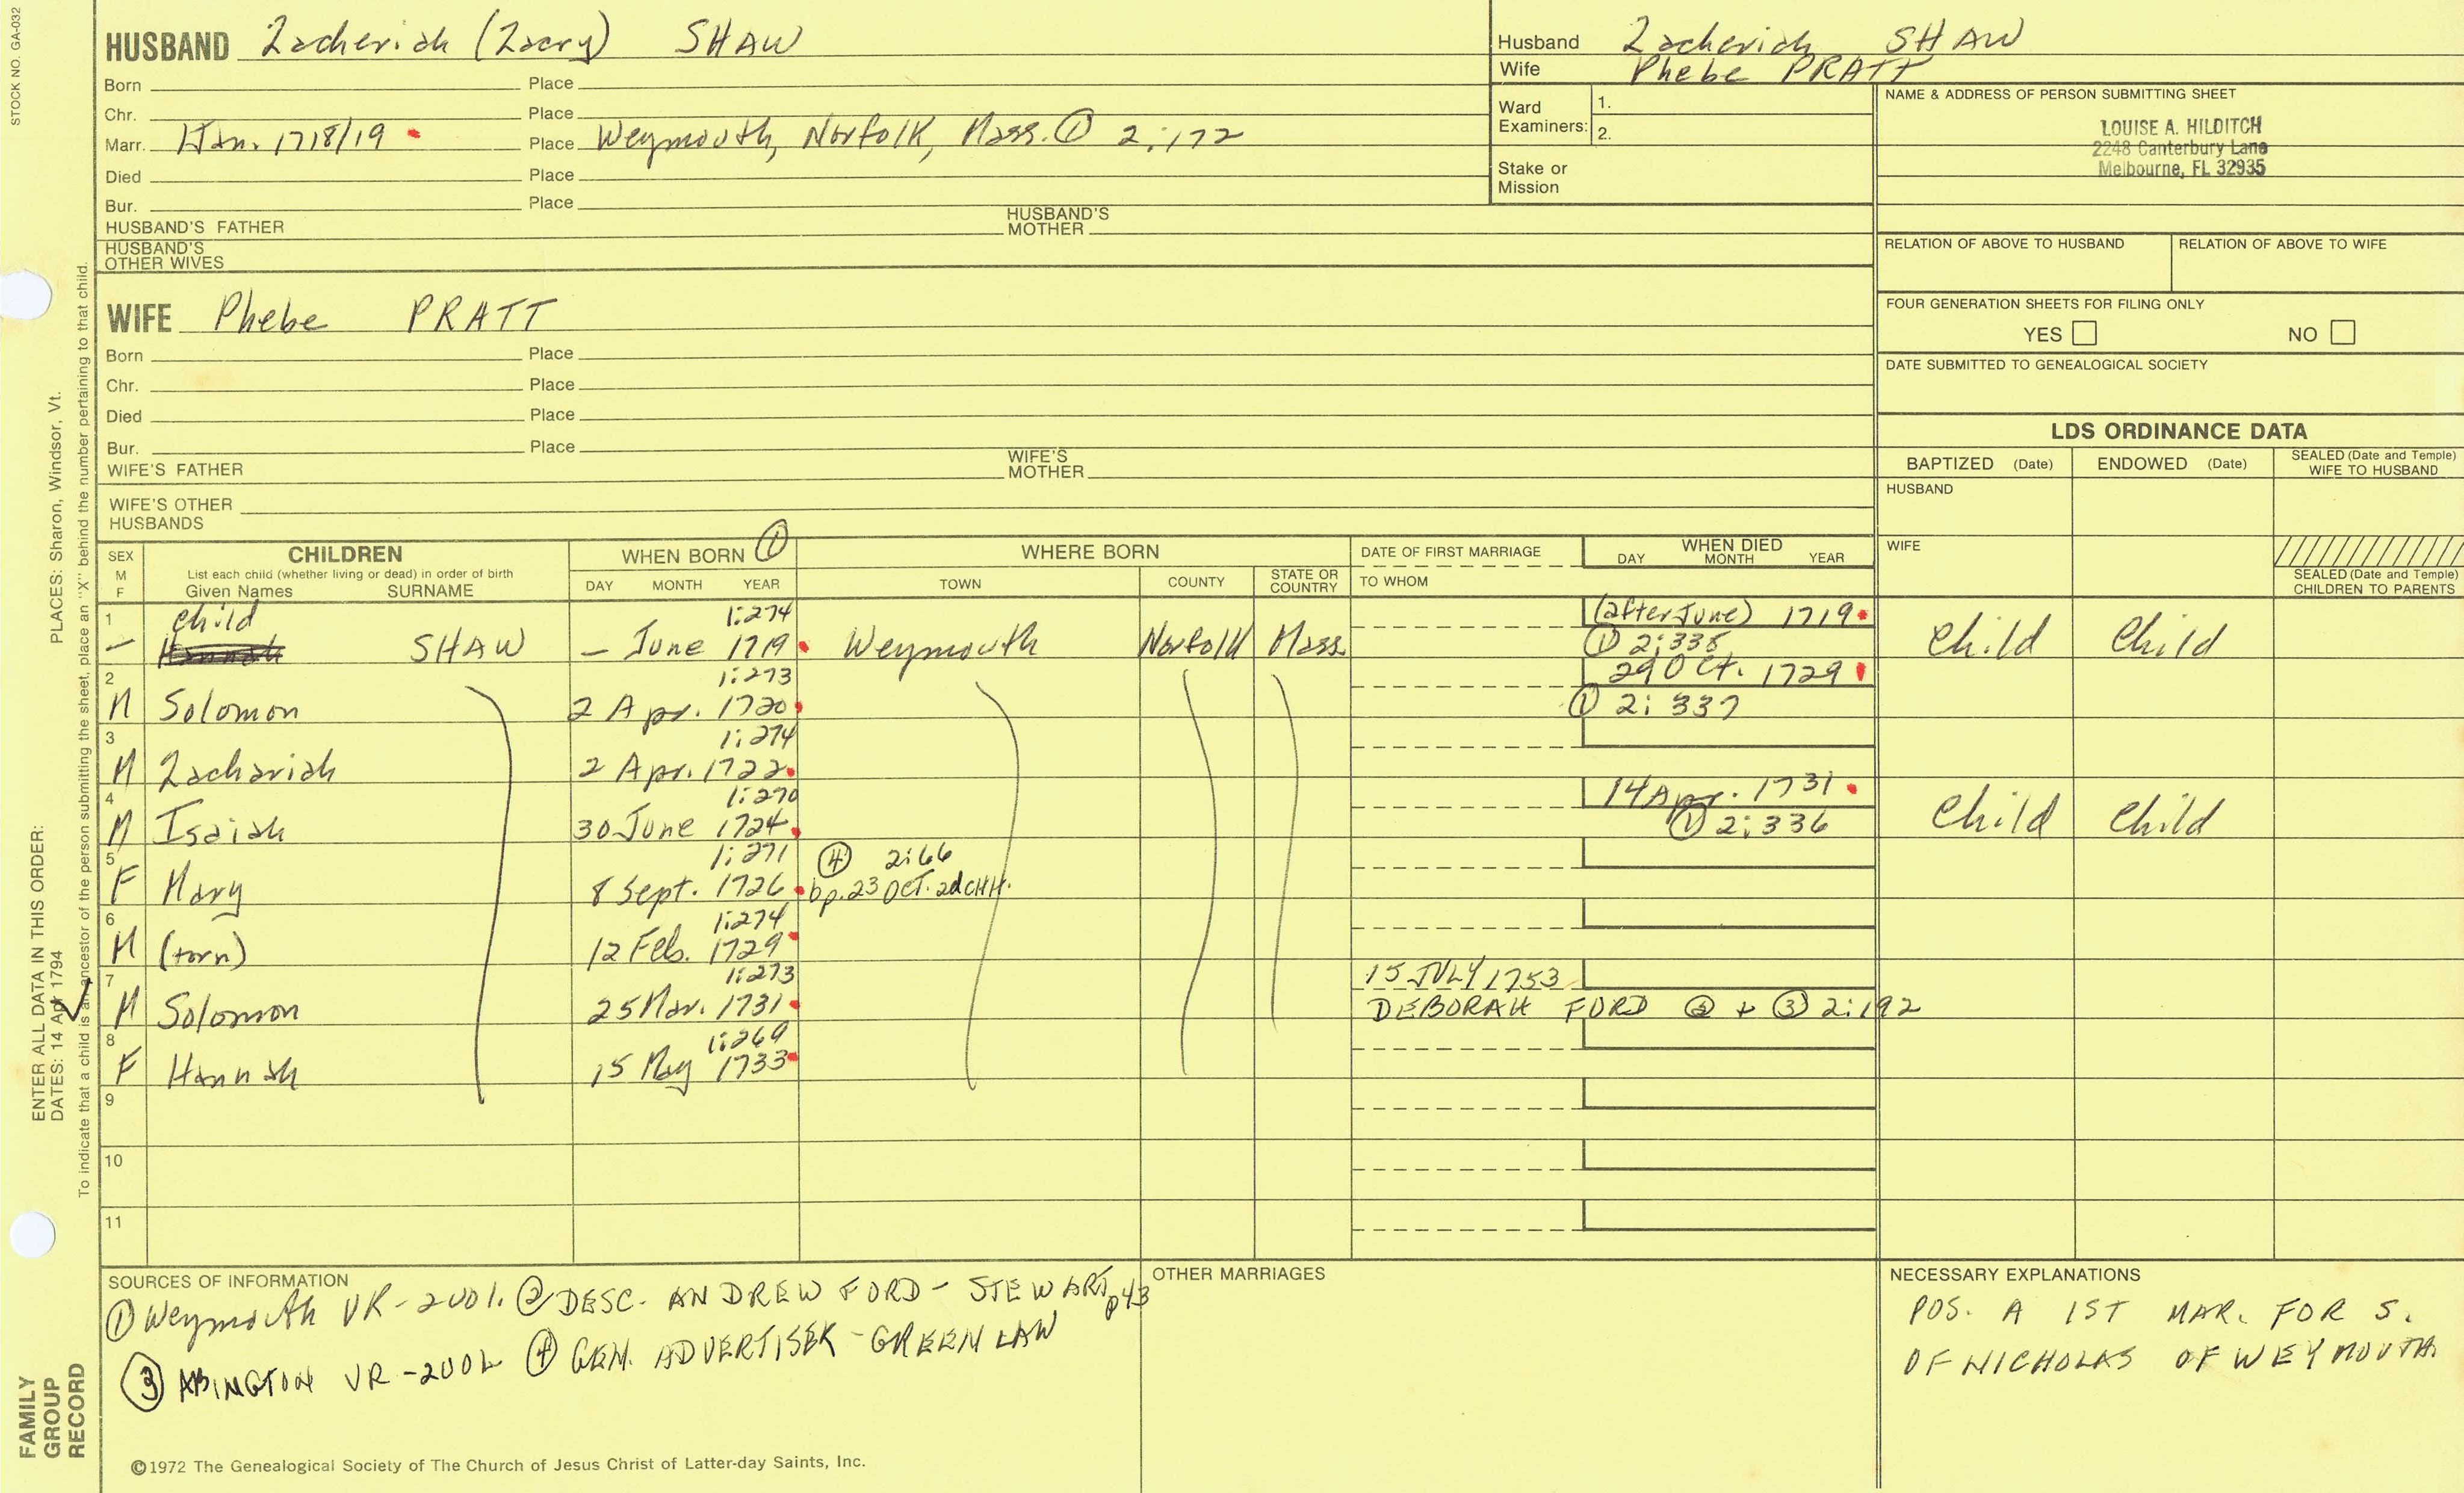 STOCK NO. GA-032
HUSBAND Zacheriah (Zacry) SHAW
Born Place
Chr. Place
Marr. 1 Jan. 1718/19 Place Weymouth, Norfolk, Mass. ① 2:172
Died Place
Bur. Place
HUSBAND'S FATHER HUSBAND'S MOTHER
HUSBAND'S OTHER WIVES
Husband Zacheriah SHAW
Wife Phebe PRATT
Ward Examiners: 1.
2.
Stake or Mission
NAME & ADDRESS OF PERSON SUBMITTING SHEET
LOUISE A. HILDITCH
2248 Canterbury Lane
Melbourne, FL 32935
RELATION OF ABOVE TO HUSBAND RELATION OF ABOVE TO WIFE
FOUR GENERATION SHEETS FOR FILING ONLY
YES NO
DATE SUBMITTED TO GENEALOGICAL SOCIETY
WIFE Phebe PRATT
Born Place
Chr. Place
Died Place
Bur. Place
WIFE'S FATHER WIFE'S MOTHER
WIFE'S OTHER HUSBANDS
LDS ORDINANCE DATA
BAPTIZED (Date) ENDOWED (Date) SEALED (Date and Temple) WIFE TO HUSBAND
HUSBAND
WIFE
SEALED (Date and Temple) CHILDREN TO PARENTS
SEX M F
CHILDREN
List each child (whether living or dead) in order of birth
Given Names SURNAME
WHEN BORN ①
DAY MONTH YEAR
WHERE BORN
TOWN COUNTY STATE OR COUNTRY
DATE OF FIRST MARRIAGE
TO WHOM
WHEN DIED
DAY MONTH YEAR
1 child 1:274 (after June) 1719
– Hannah SHAW – June 1719 Weymouth Norfolk Mass. ① 2:335 Child Child
2 1:273 29 Oct. 1729
M Solomon 2 Apr. 1720 ① 2:337
3 1:274
M Zachariah 2 Apr. 1722
4 1:270 14 Apr. 1731
M Isaiah 30 June 1724 ① 2:336 Child Child
5 1:271 ④ 2:66
F Mary 8 Sept. 1726 bp. 23 OCT. 2d CHH.
6 1:274
M (torn) 12 Feb. 1729
7 1:273 15 JULY 1753
M Solomon 25 Mar. 1731 DEBORAH FORD ② + ③ 2:192
8 1:269
F Hannah 15 May 1733
9
10
11
SOURCES OF INFORMATION
① Weymouth VR - 2001. ② DESC. ANDREW FORD - STEWART, p43
③ ABINGTON VR - 2002 ④ GEN. ADVERTISER - GREENLAW
OTHER MARRIAGES
NECESSARY EXPLANATIONS
POS. A 1ST MAR. FOR S.
OF NICHOLAS OF WEYMOUTH
©1972 The Genealogical Society of The Church of Jesus Christ of Latter-day Saints, Inc.
FAMILY
GROUP
RECORD
ENTER ALL DATA IN THIS ORDER:
DATES: 14 Apr 1794
PLACES: Sharon, Windsor, Vt.
To indicate that a child is an ancestor of the person submitting the sheet, place an "X" behind the number pertaining to that child.